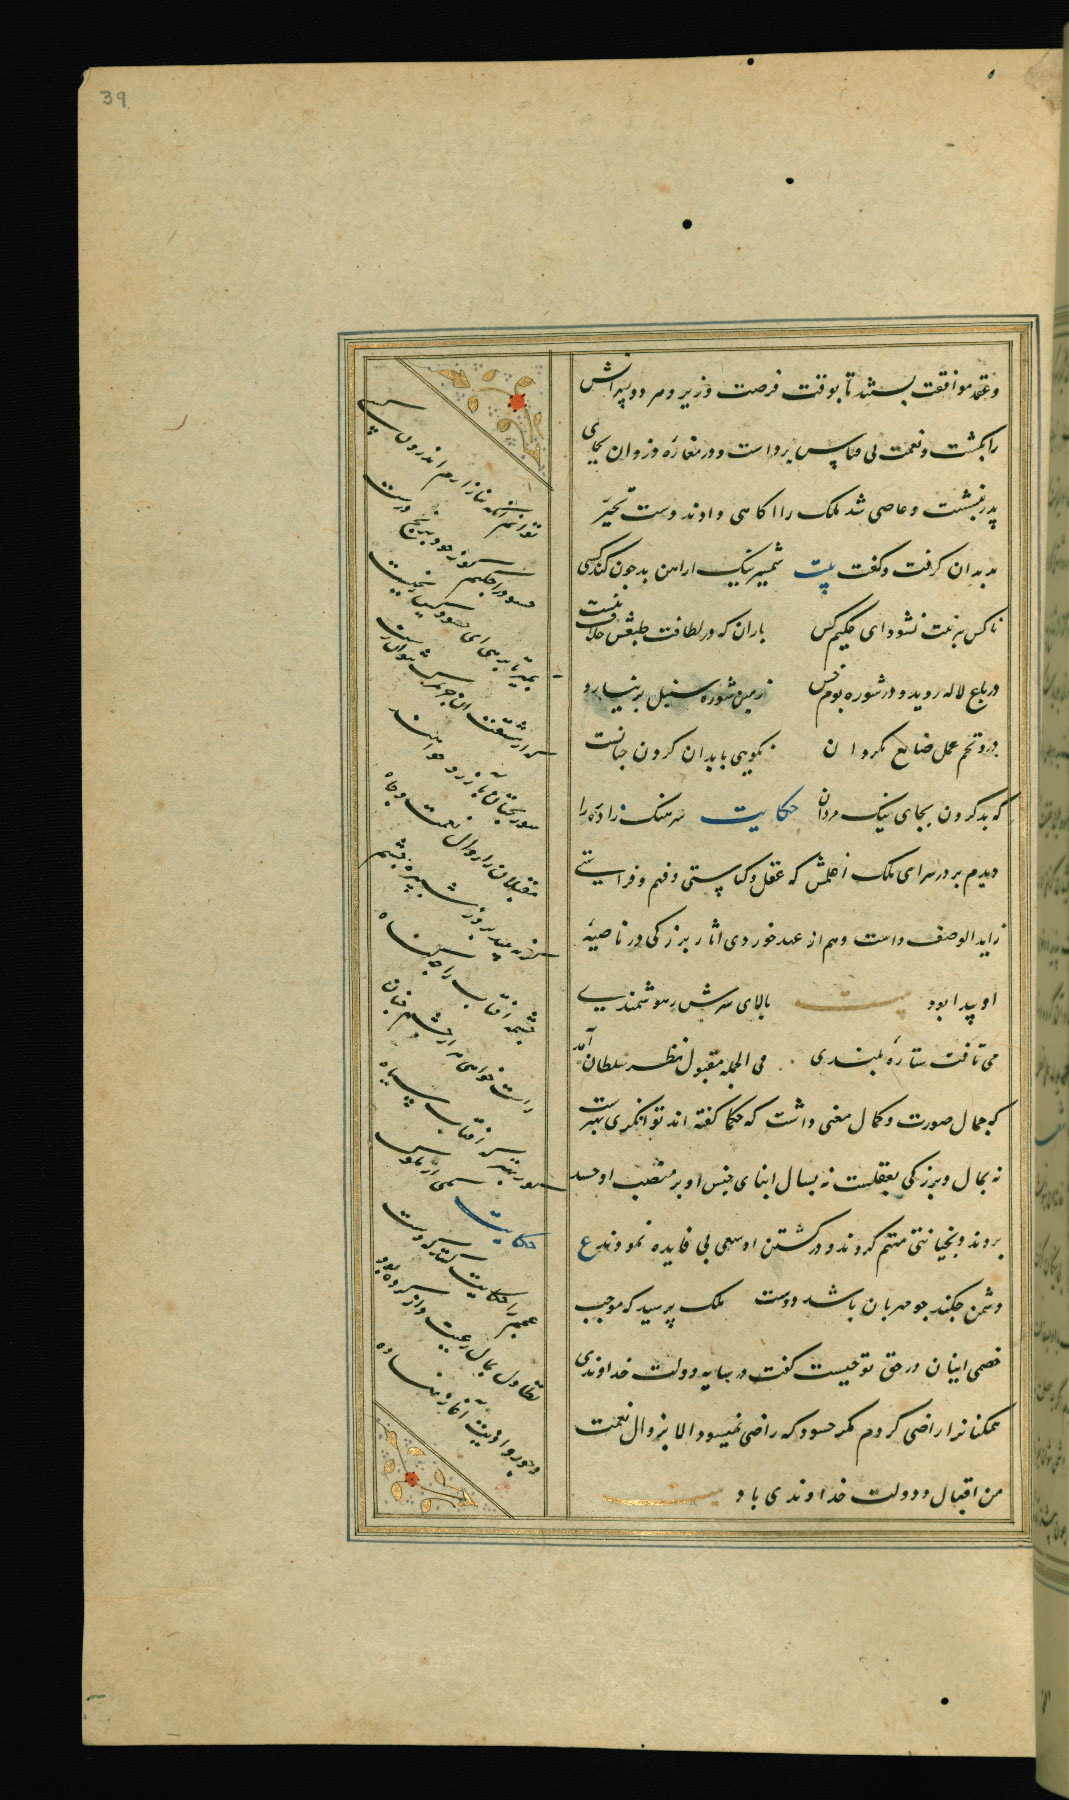 39
وعقد موافقت بستند تا بوقت فرصت وزیر و هر دو پسرانش
را بکشت و نعمت بی قیاس برداشت و در مغارهٔ دزدان بجای
پدر نشست و عاصی شد ملک را آگاهی دادند دست تحیر
بدندان گرفت و گفت بیت شمشیر نیک از آهن بد چون کند کسی
ناکس بتربیت نشود ای حکیم کس باران که در لطافت طبعش خلاف نیست
در باغ لاله روید و در شوره بوم خس زمین شوره سنبل بر نیارد
درو تخم عمل ضایع مگردان نکویی با بدان کردن چنانست
که بد کردن بجای نیک مردان حکایت سرهنگ زادهٔ را
دیدم بر در سرای ملک اغلمش که عقل و کیاستی و فهم و فراستی
زاید الوصف داشت و هم از عهد خوردی آثار بزرگی در ناصیهٔ
او پیدا بود بیت بالای سرش ز هوشمندی
می تافت ستارهٔ بلندی فی الجمله مقبول نظر سلطان آمد
که جمال صورت و کمال معنی داشت که حکما گفته اند توانگری بهنرست
نه بمال و بزرگی بعقلست نه بسال ابنای جنس او بر منصب او حسد
بردند و بخیانتی متهم کردند و در کشتن او سعی بی فایده نمودند ع
دشمن چکند چو مهربان باشد دوست ملک پرسید که موجب
خصمی اینان در حق تو چیست گفت در سایه دولت خداوندی
همکنانرا راضی کردم مگر حسود که راضی نمیشود الا بزوال نعمت
من اقبال و دولت خداوندی باد بیت
توانم آنکه نیازارم اندرون کسی
حسود را چکنم کو ز خود برنج درست
بمیر تا برهی ای حسود کین رنجیست
که از مشقت آن جز بمرگ نتوان رست
شوربختان بآرزو خواهند
مقبلان را زوال نعمت و جاه
گر نه بیند بروز شبپره چشم
چشمه آفتاب را چه گناه
راست خواهی هزار چشم چنان
کور بهتر که آفتاب سیاه
حکایت یکی از ملوک
عجم را حکایت کنند که دست
تطاول بمال رعیت دراز کرده بود
و جور و اذیت آغاز نهاده